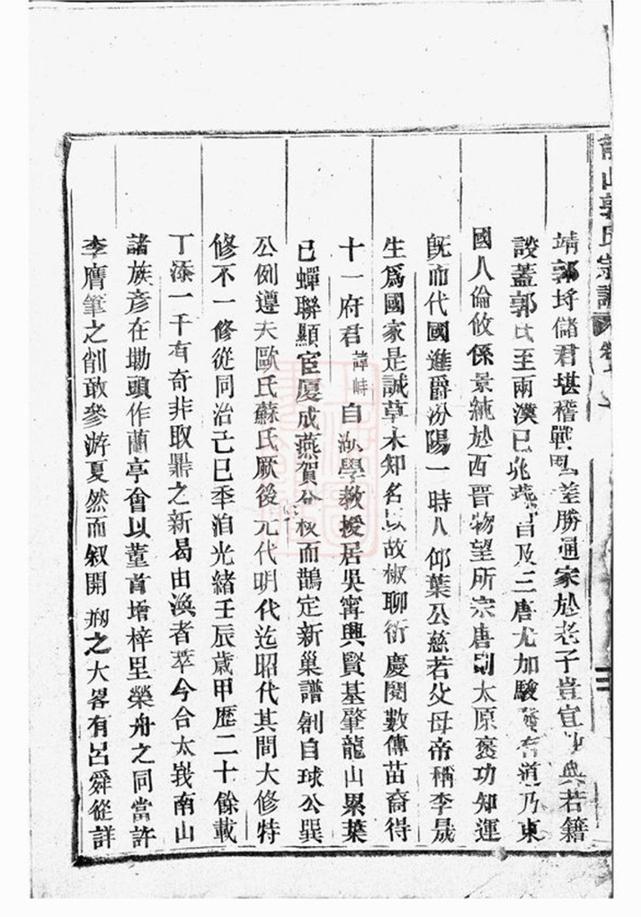 龍山郭氏宗譜 卷
靖郭埒儲君堪稽戰 差勝通家於老子豈宜 典若籍
談蓋郭氏至兩漢已兆 自及三唐尤加駿發有道乃東
國人倫攸係景純於西晉物望所宗唐則太原褒功知運
旣而代國進爵汾陽一時人仰葉公慈若父母帝稱李晟
生爲國家是誠草木知名以故椒聊衍慶閱數傳苗裔得
十一府君諱峙自 學教授居吳寧興賢基肇龍山累葉
已蟬聯顯宦厦成燕賀 而鵲定新巢譜創自球公巽
公例遵夫歐氏蘇氏厥後元代明代迄昭代其間大修特
修不一修從同治己巳季洎光緒壬辰歲甲歷二十餘載
丁添一千有奇非取鼎之新曷由渙者萃今合太峩南山
諸族彥在墈頭作蘭亭會以董首增梓里榮舟之同當許
李膺筆之削敢參游夏然而叙開 之大畧有呂舜從詳